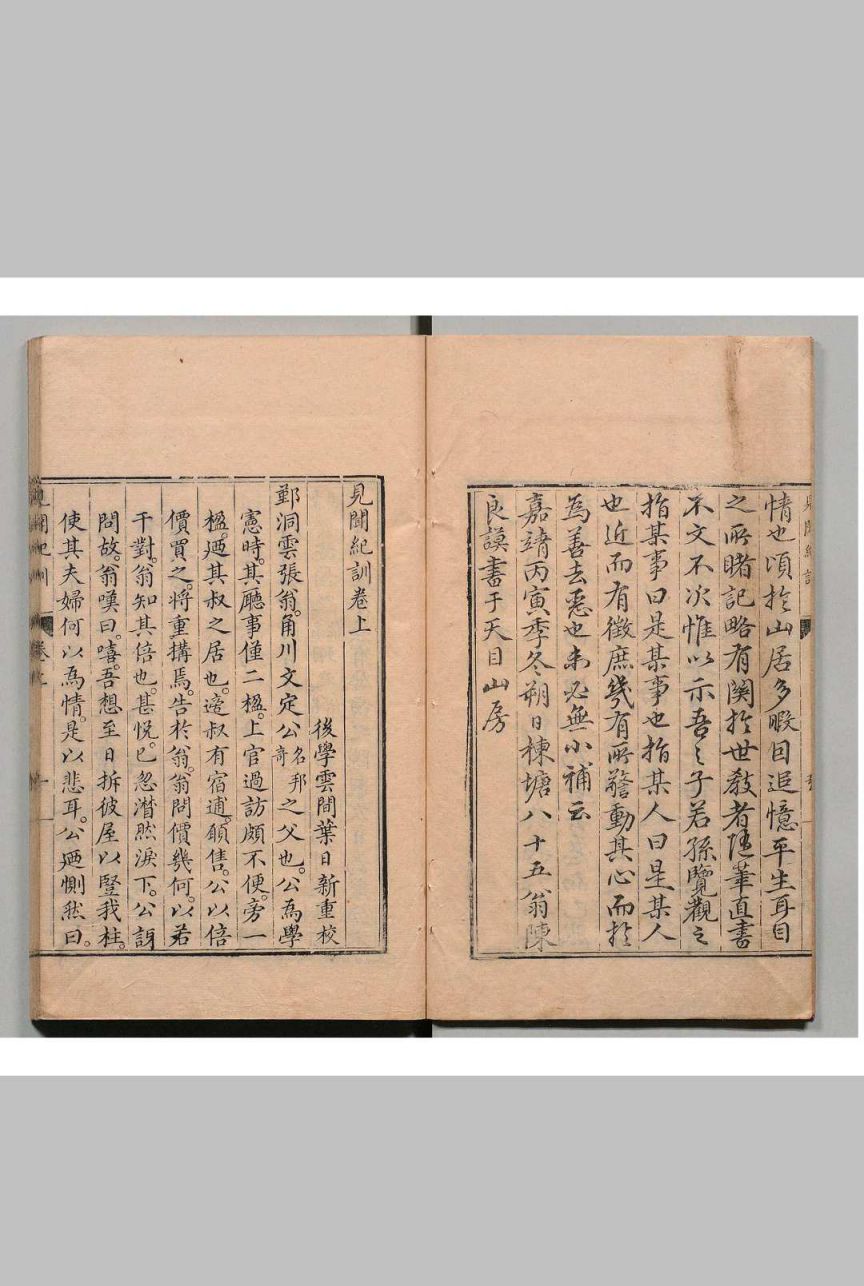 情也頃於山居多暇因追憶平生耳目
之所睹記略有関於世教者随筆直書
不文不次惟以示吾之子若孫覽觀之
指某事曰是某事也指某人曰是某人
也近而有徵庶幾有所警動其心而於
為善去惡也未必無小補云
嘉靖丙寅季冬朔日棟塘八十五翁陳
良謨書于天目山房
見聞紀訓卷上
後學雲間葉日新重校
鄞洞雲張翁。甬川文定公名邦奇之父也。公為學
憲時。其廳事僅二楹。上官過訪頗不便。旁一
楹。廼其叔之居也。適叔有宿逋。願售。公以倍
價買之。將重搆焉。告於翁。翁問價幾何。以若
干對。翁知其倍也。甚悦。已忽潸然淚下。公訝
問故。翁嘆曰。嘻。吾想至日拆彼屋以豎我柱。
使其夫婦何以為情。是以悲耳。公廼惻然曰。
見聞紀訓
卷上
一